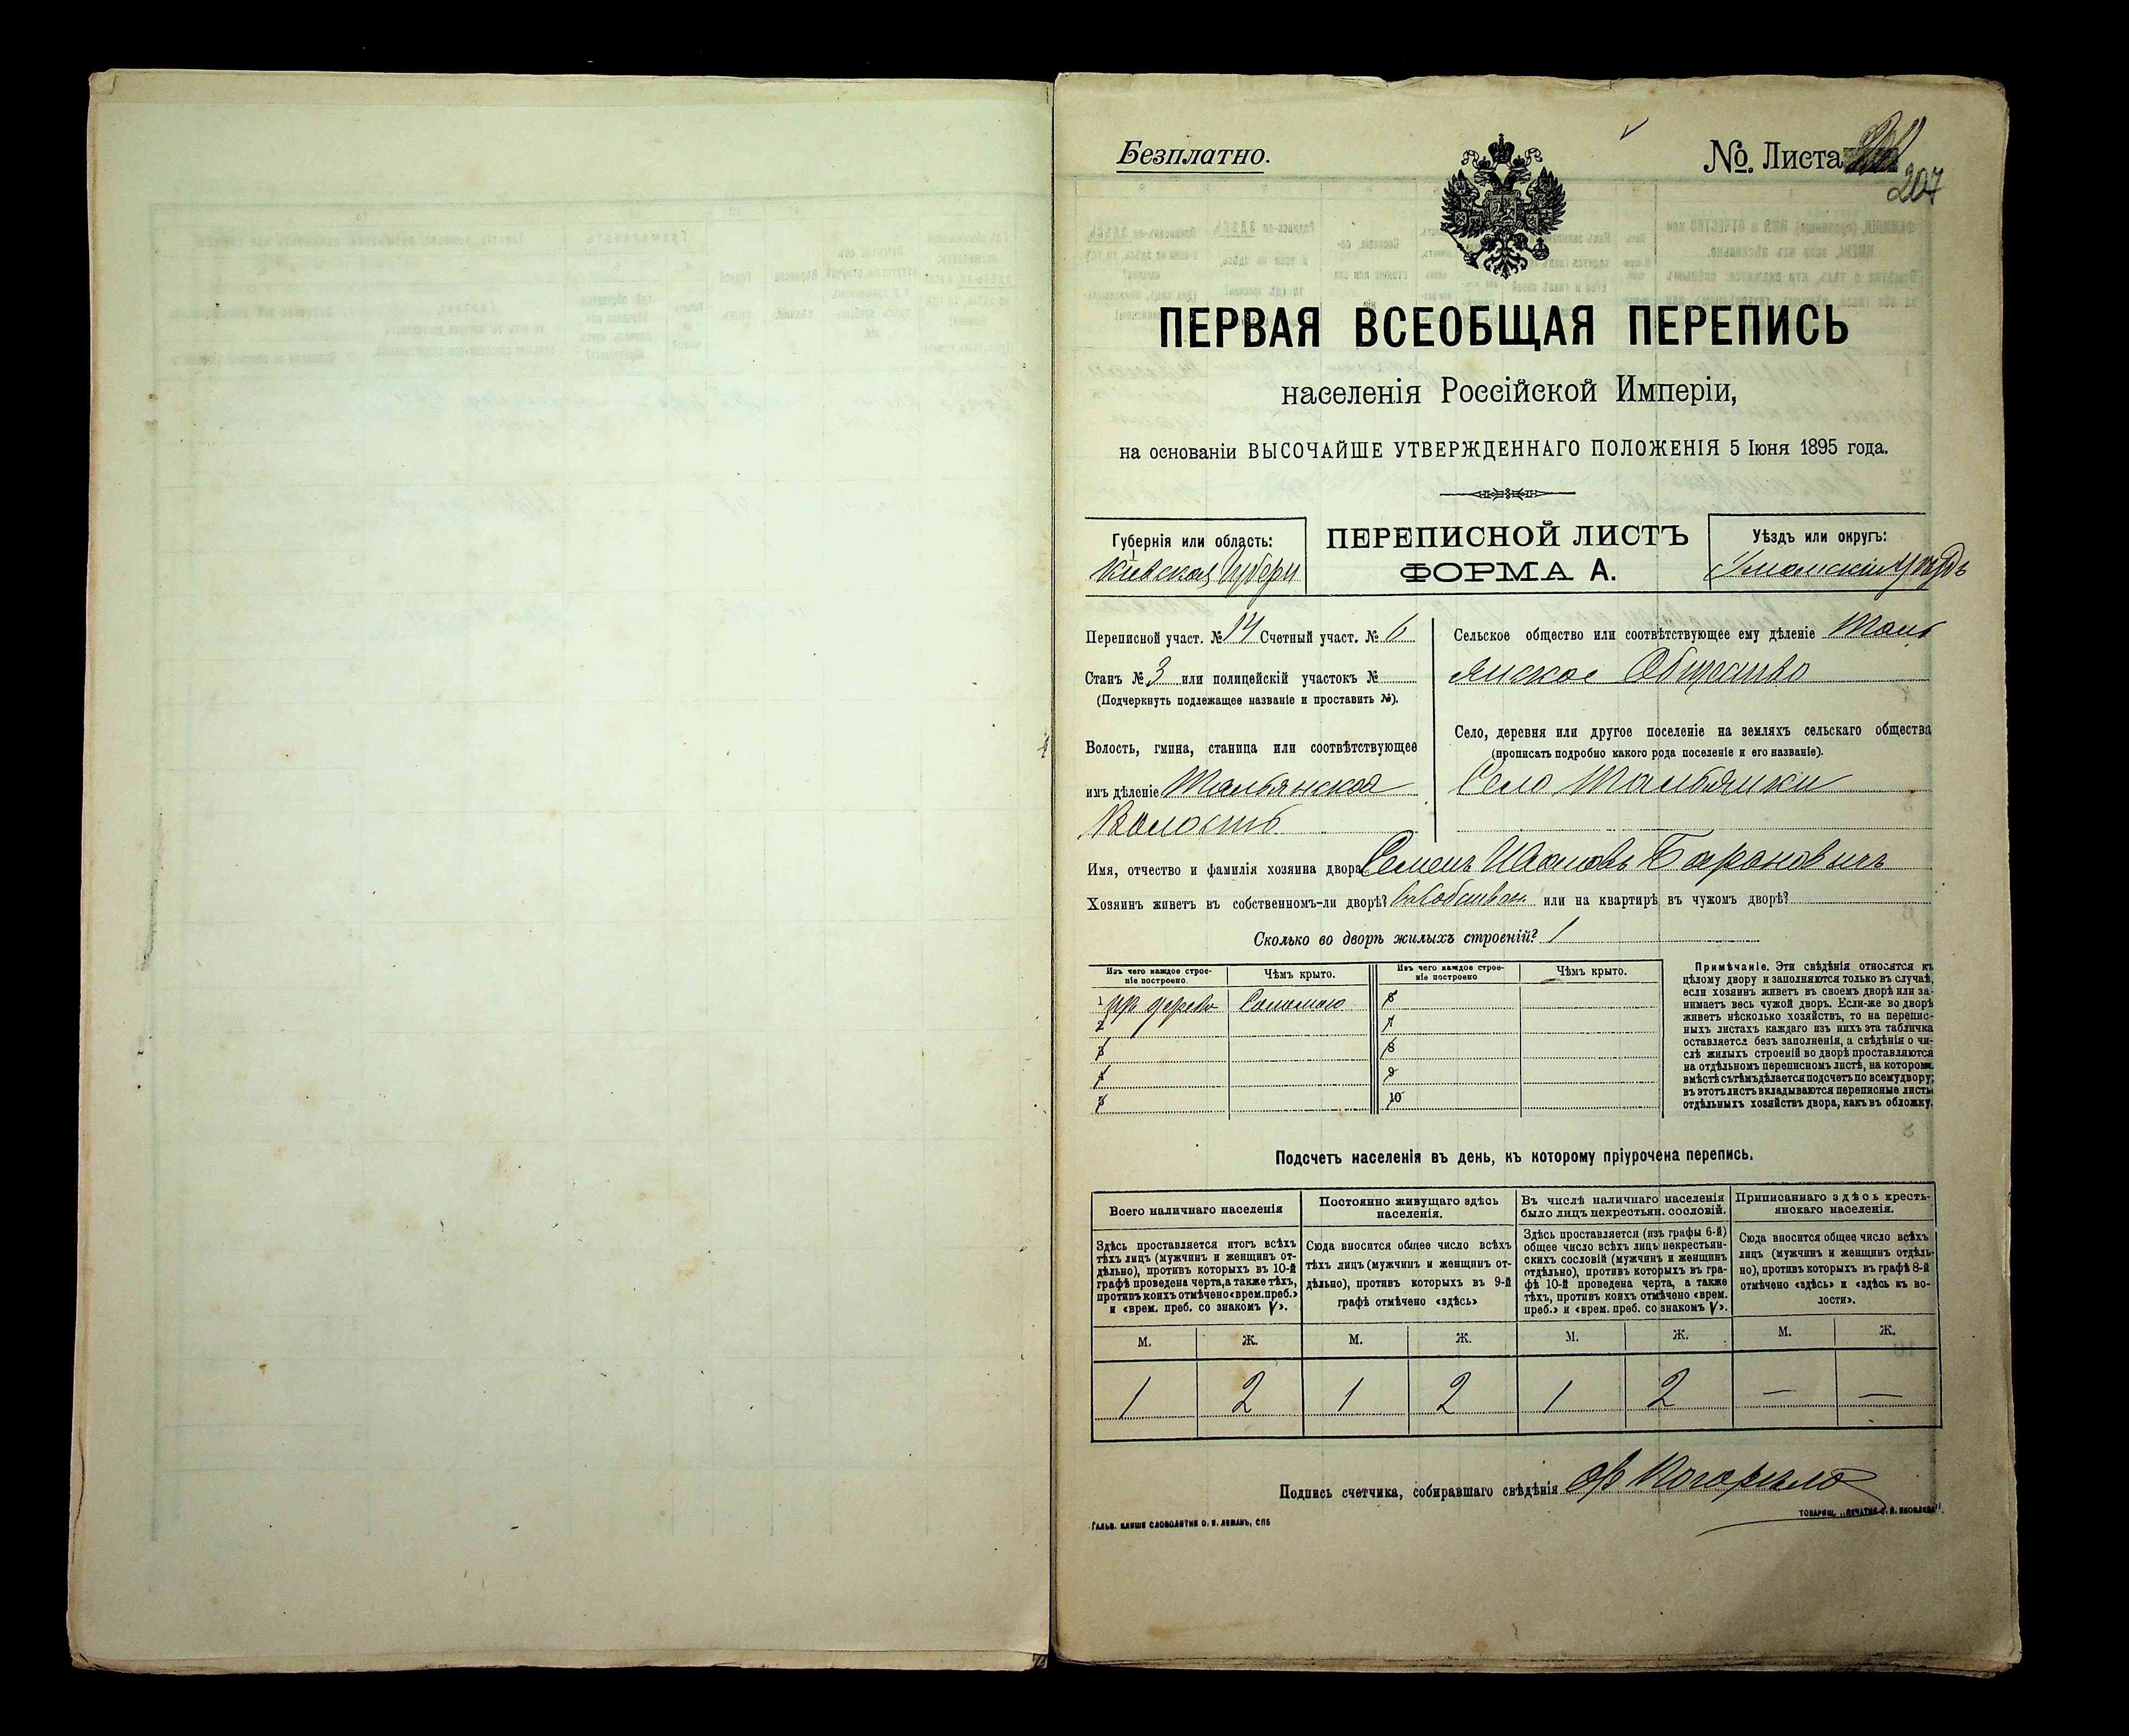 Безплатно.
№ Листа
207
ПЕРВАЯ ВСЕОБЩАЯ ПЕРЕПИСЬ
населенія Россійской Имперіи,
на основаніи ВЫСОЧАЙШЕ УТВЕРЖДЕННАГО ПОЛОЖЕНІЯ 5 Іюня 1895 года.
Губернія или область:
Кіевская Губерн
ПЕРЕПИСНОЙ ЛИСТЪ
ФОРМА А.
Уѣздъ или округъ:
Уманскій Уѣздъ
Переписной участ. № 14 Счетный участ. № 6
Станъ № 3 или полицейскій участокъ №
(Подчеркнуть подлежащее названіе и проставить №).
Волость, гмина, станица или соотвѣтствующее
имъ дѣленіе Тальянская
Волость
Сельское общество или соотвѣтствующее ему дѣленіе Таль
янское Общество
Село, деревня или другое поселеніе на земляхъ сельскаго общества
(прописать подробно какого рода поселеніе и его названіе).
Село Тальянки
Имя, отчество и фамилія хозяина двора Семенъ Ивановъ Барановичъ
Хозяинъ живетъ въ собственномъ-ли дворѣ? въ собствен или на квартирѣ въ чужомъ дворѣ?
Сколько во дворѣ жилыхъ строеній? 1
Изъ чего каждое строе-
ніе построено.
Чѣмъ крыто.
Изъ чего каждое строе-
ніе построено
Чѣмъ крыто.
1 изъ дерева Соломою 6
2 7
3 8
4 9
5 10
Примѣчаніе. Эти свѣдѣнія относятся къ
цѣлому двору и заполняются только въ случаѣ,
если хозяинъ живетъ въ своемъ дворѣ или за-
нимаетъ весь чужой дворъ. Если-же во дворѣ
живетъ нѣсколько хозяйствъ, то на перепис-
ныхъ листахъ каждаго изъ нихъ эта табличка
оставляется безъ заполненія, а свѣдѣнія о чи-
слѣ жилыхъ строеній во дворѣ проставляются
на отдѣльномъ переписномъ листѣ, на которомъ
вмѣстѣ съ тѣмъ дѣлается подсчетъ по всему двору;
въ этотъ листъ вкладываются переписные листы
отдѣльныхъ хозяйствъ двора, какъ въ обложку.
Подсчетъ населенія въ день, къ которому пріурочена перепись.
Всего наличнаго населенія
Здѣсь проставляется итогъ всѣхъ
тѣхъ лицъ (мужчинъ и женщинъ от-
дѣльно), противъ которыхъ въ 10-й
графѣ проведена черта, а также тѣхъ,
противъ коихъ отмѣчено «врем. преб.»
и «врем. преб. со знакомъ V».
Постоянно живущаго здѣсь
населенія.
Сюда вносится общее число всѣхъ
тѣхъ лицъ (мужчинъ и женщинъ от-
дѣльно), противъ которыхъ въ 9-й
графѣ отмѣчено «здѣсь»
Въ числѣ наличнаго населенія
было лицъ некрестьян. сословій.
Здѣсь проставляется (изъ графы 6-й)
общее число всѣхъ лицъ некрестьян-
скихъ сословій (мужчинъ и женщинъ
отдѣльно), противъ которыхъ въ гра-
фѣ 10-й проведена черта, а также
тѣхъ, противъ коихъ отмѣчено «врем.
преб.» и «врем. преб. со знакомъ V».
Приписаннаго здѣсь кресть-
янскаго населенія.
Сюда вносится общее число всѣхъ
лицъ (мужчинъ и женщинъ отдѣль-
но), противъ которыхъ въ графѣ 8-й
отмѣчено «здѣсь» и «здѣсь къ во-
лости».
М. Ж. М. Ж. М. Ж. М. Ж.
1 2 1 2 1 2 — —
Подпись счетчика, собиравшаго свѣдѣнія
ГАЛЬВ. КЛИШЕ СЛОВОЛИТНИ О. И. ЛЕМАНЪ, СПБ
ТОВАРИЩ. „ПЕЧАТНЯ С. П. ЯКОВЛЕВА“.